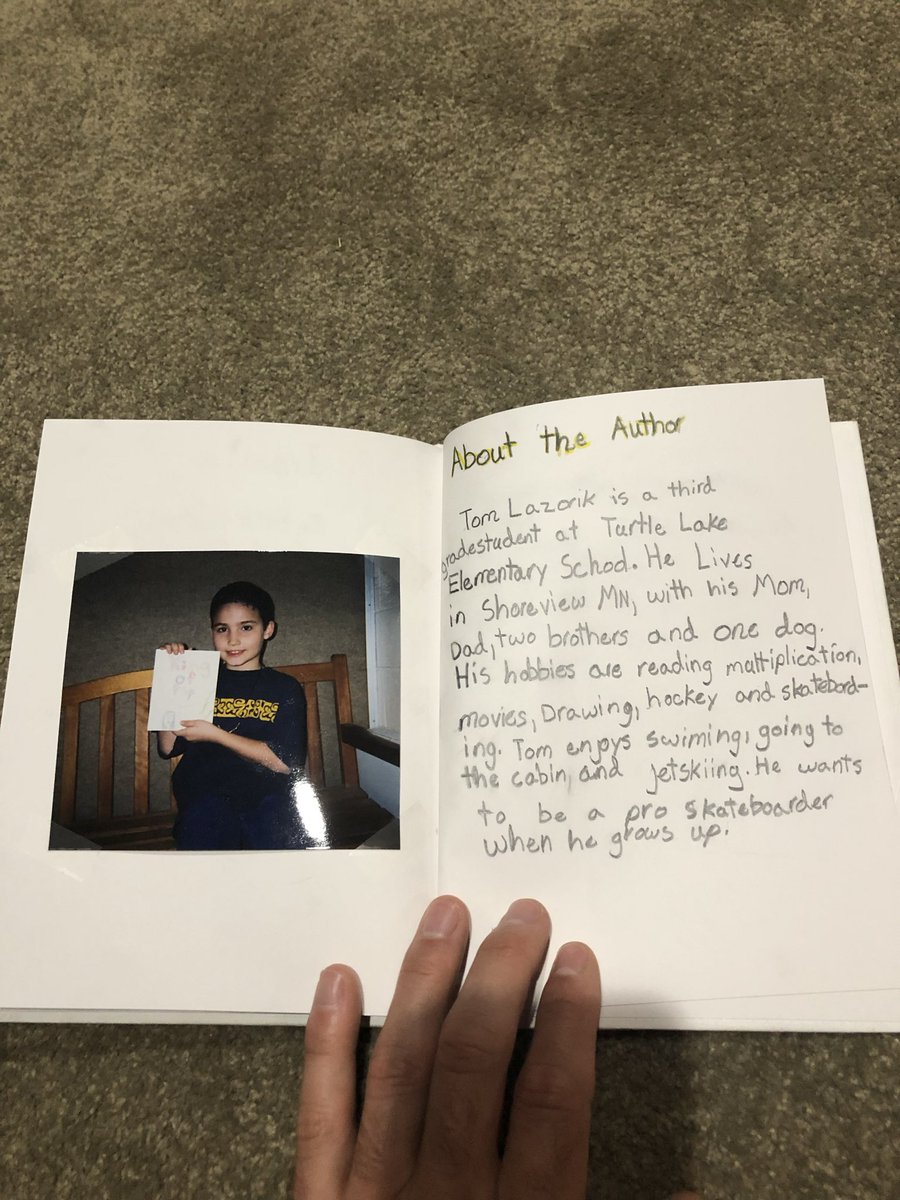 About the Author
Tom Lazorik is a third
gradestudent at Turtle Lake
Elementary School. He Lives
in Shoreview MN, with his Mom,
Dad, two brothers and one dog.
His hobbies are reading maltiplication,
movies, Drawing, hockey and skatebord-
ing. Tom enjoys swiming, going to
the cabin, and jetskiing. He wants
to be a pro skateboarder
when he grows up.